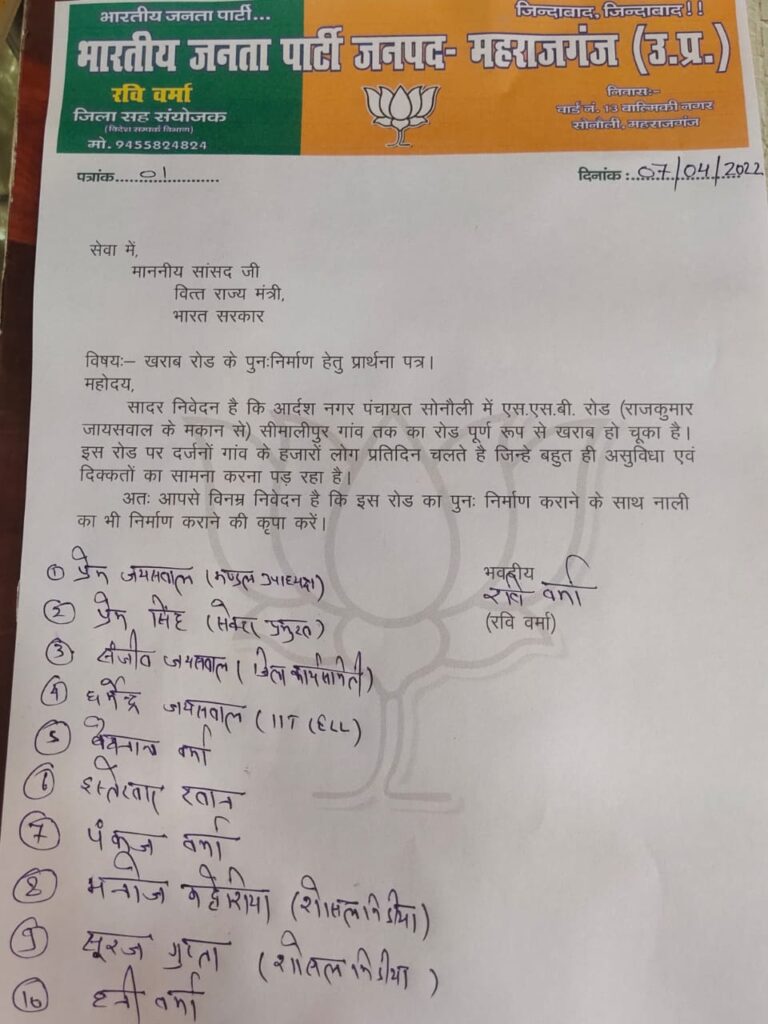 भारतीय जनता पार्टी...
जिन्दाबाद, जिन्दाबाद!!
भारतीय जनता पार्टी जनपद- महराजगंज (उ.प्र.)
रवि वर्मा
जिला सह संयोजक
(विदेश सम्पर्क विभाग)
मो. 9455824824
निवास:-
वार्ड नं. 13 वाल्मिकी नगर
सोनौली, महराजगंज
पत्रांक.....01............
दिनांक :..07/04/2022
सेवा में,
माननीय सांसद जी
वित्त राज्य मंत्री,
भारत सरकार
विषयः– खराब रोड के पुनःनिर्माण हेतु प्रार्थना पत्र।
महोदय,
सादर निवेदन है कि आर्दश नगर पंचायत सोनौली में एस.एस.बी. रोड (राजकुमार
जायसवाल के मकान से) सीमालीपुर गांव तक का रोड पूर्ण रूप से खराब हो चूका है।
इस रोड पर दर्जनों गांव के हजारों लोग प्रतिदिन चलते है जिन्हे बहुत ही असुविधा एवं
दिक्कतों का सामना करना पड़ रहा है।
अतः आपसे विनम्र निवेदन है कि इस रोड का पुनः निर्माण कराने के साथ नाली
का भी निर्माण कराने की कृपा करें।
भवदीय
रवि वर्मा
(रवि वर्मा)
① प्रेम जयसवाल (मण्डल अध्यक्ष)
② प्रेम सिंह (सेक्टर प्रमुख)
③ संजीव जयसवाल (जिला कार्यसमिती)
④ धर्मेन्द्र जयसवाल (IIT CELL)
⑤ वर्मा
⑥ खान
⑦ पंकज वर्मा
⑧ मनोज (शोसल मिडीया)
⑨ सूरज गुप्ता (शोसल मिडीया)
⑩ वर्मा